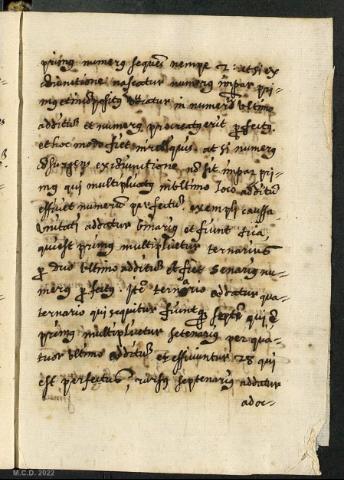 primus numerus sequēs nempe 2: at si ex
coniunctione nascatur numerus impar pri-
mus et incōpositus ducatur in numerū ultimo
additū et numerus procreatus erit pfectus
et hoc modo fiet in reliquis. at si numerus
cōsurgens ex coniunctione nō sit impar pri-
mus qui multiplicatus in ultimo loco additū
efficiet numerū perfectū exempli caussa
unitati addatur binarius et fiunt tria
qui est primus multiplicetur ternarius
p duo ultimo additū et fiet senarius nu-
merus pfectus. Itē ternario addatur qua-
ternario qui sequitur fiuntque septē qui ē
primus multiplicetur setenarius per qua-
tuor ultimo additū et efficiuntur 28 qui
est perfectus, rursus septenarius addatur
adoc-
M.C.D. 2022